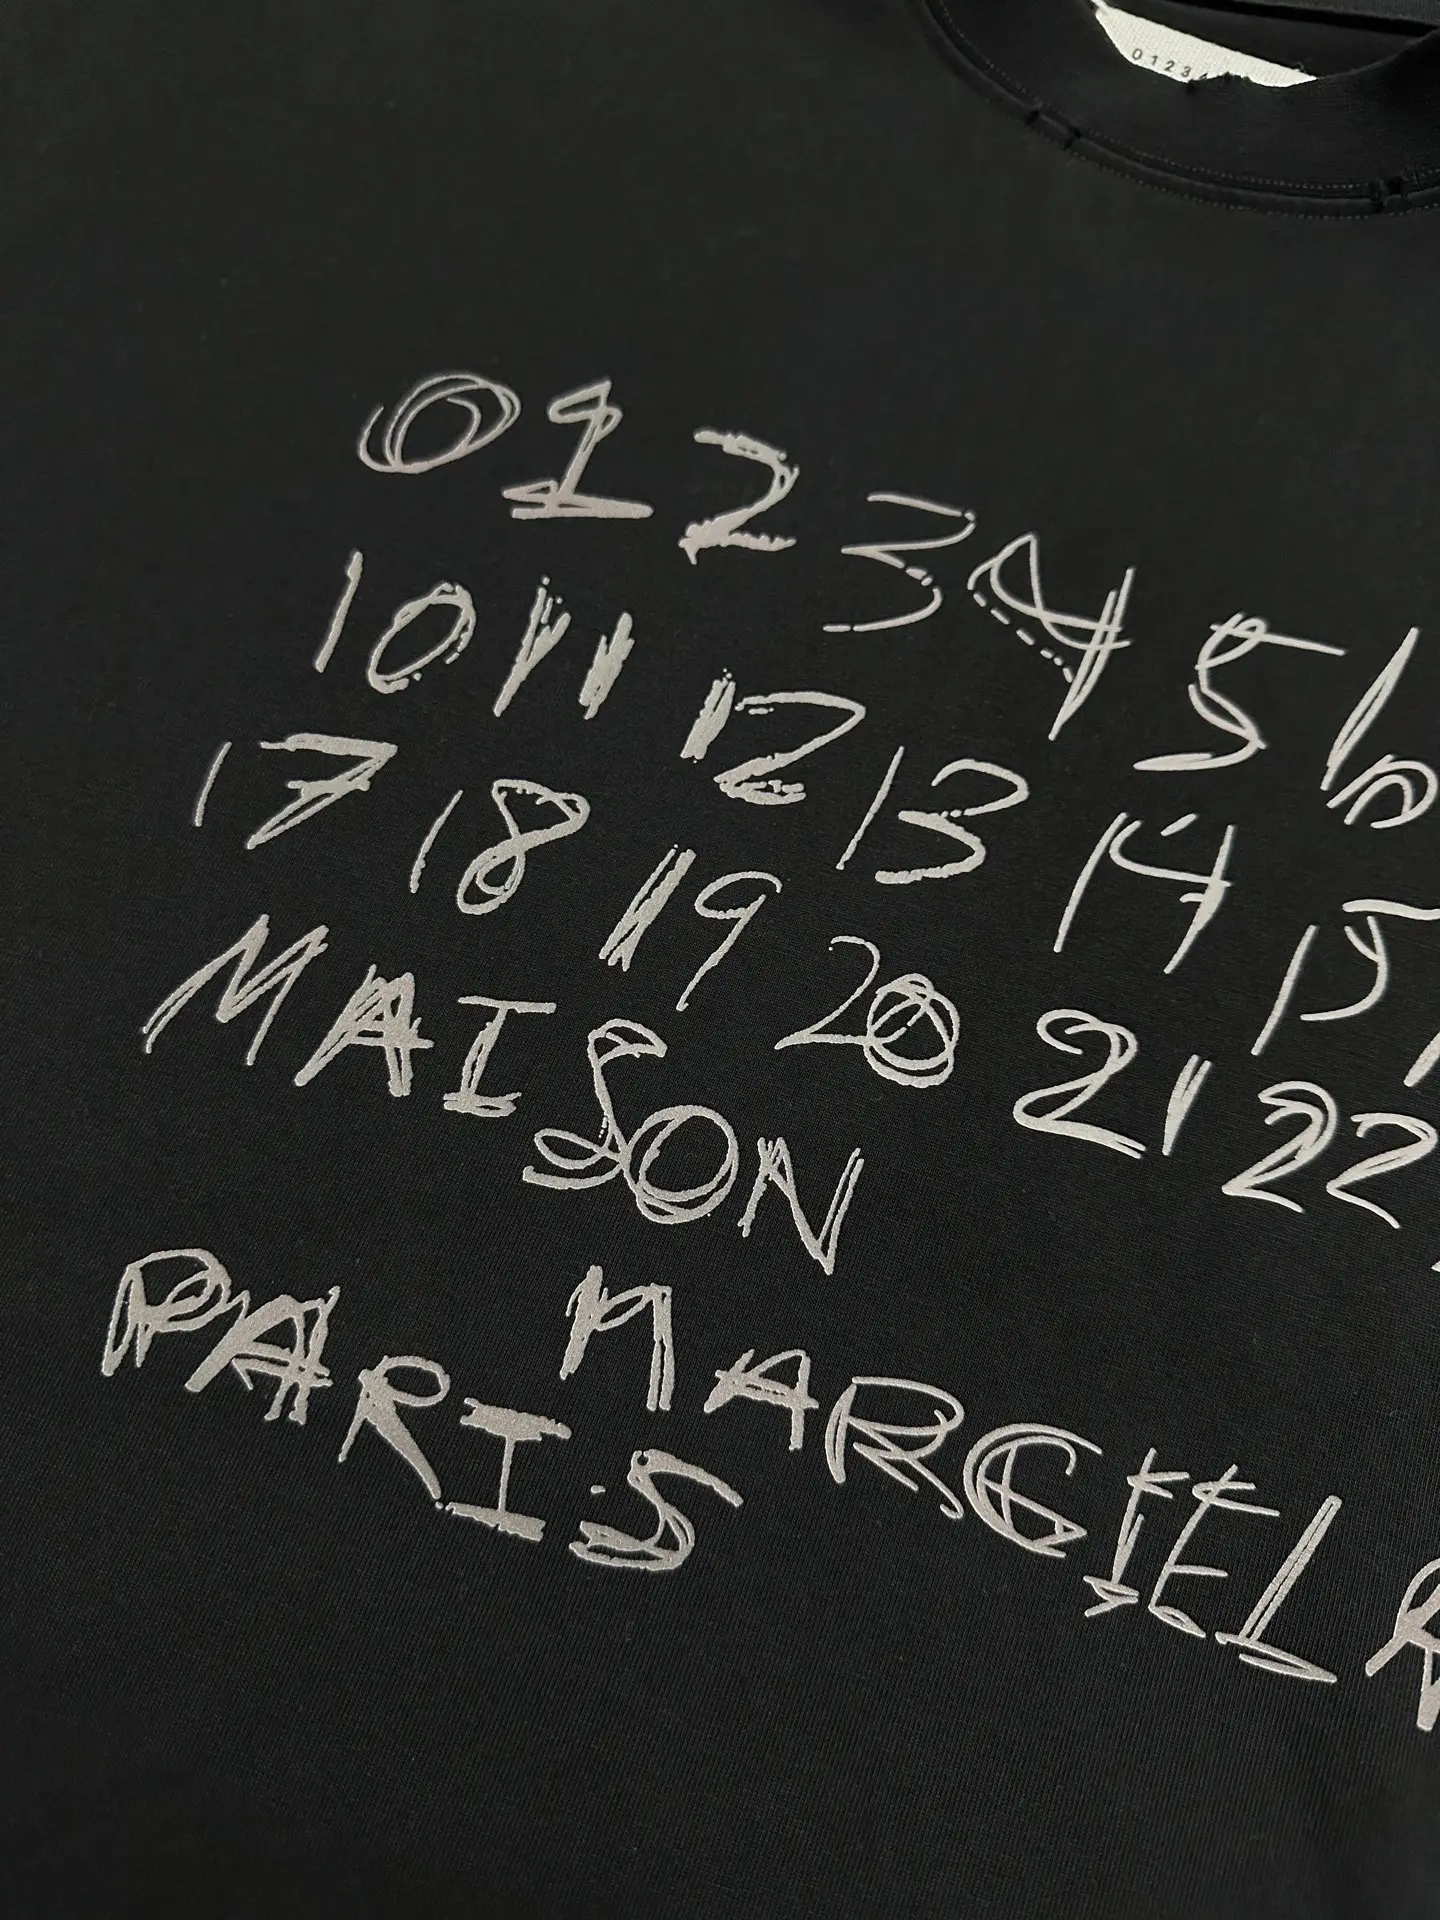 01234
0 1 2 3 4 5 6
10 11 12 13 14 15
17 18 19 20 21 22
MAISON
MARGIELA
PARIS